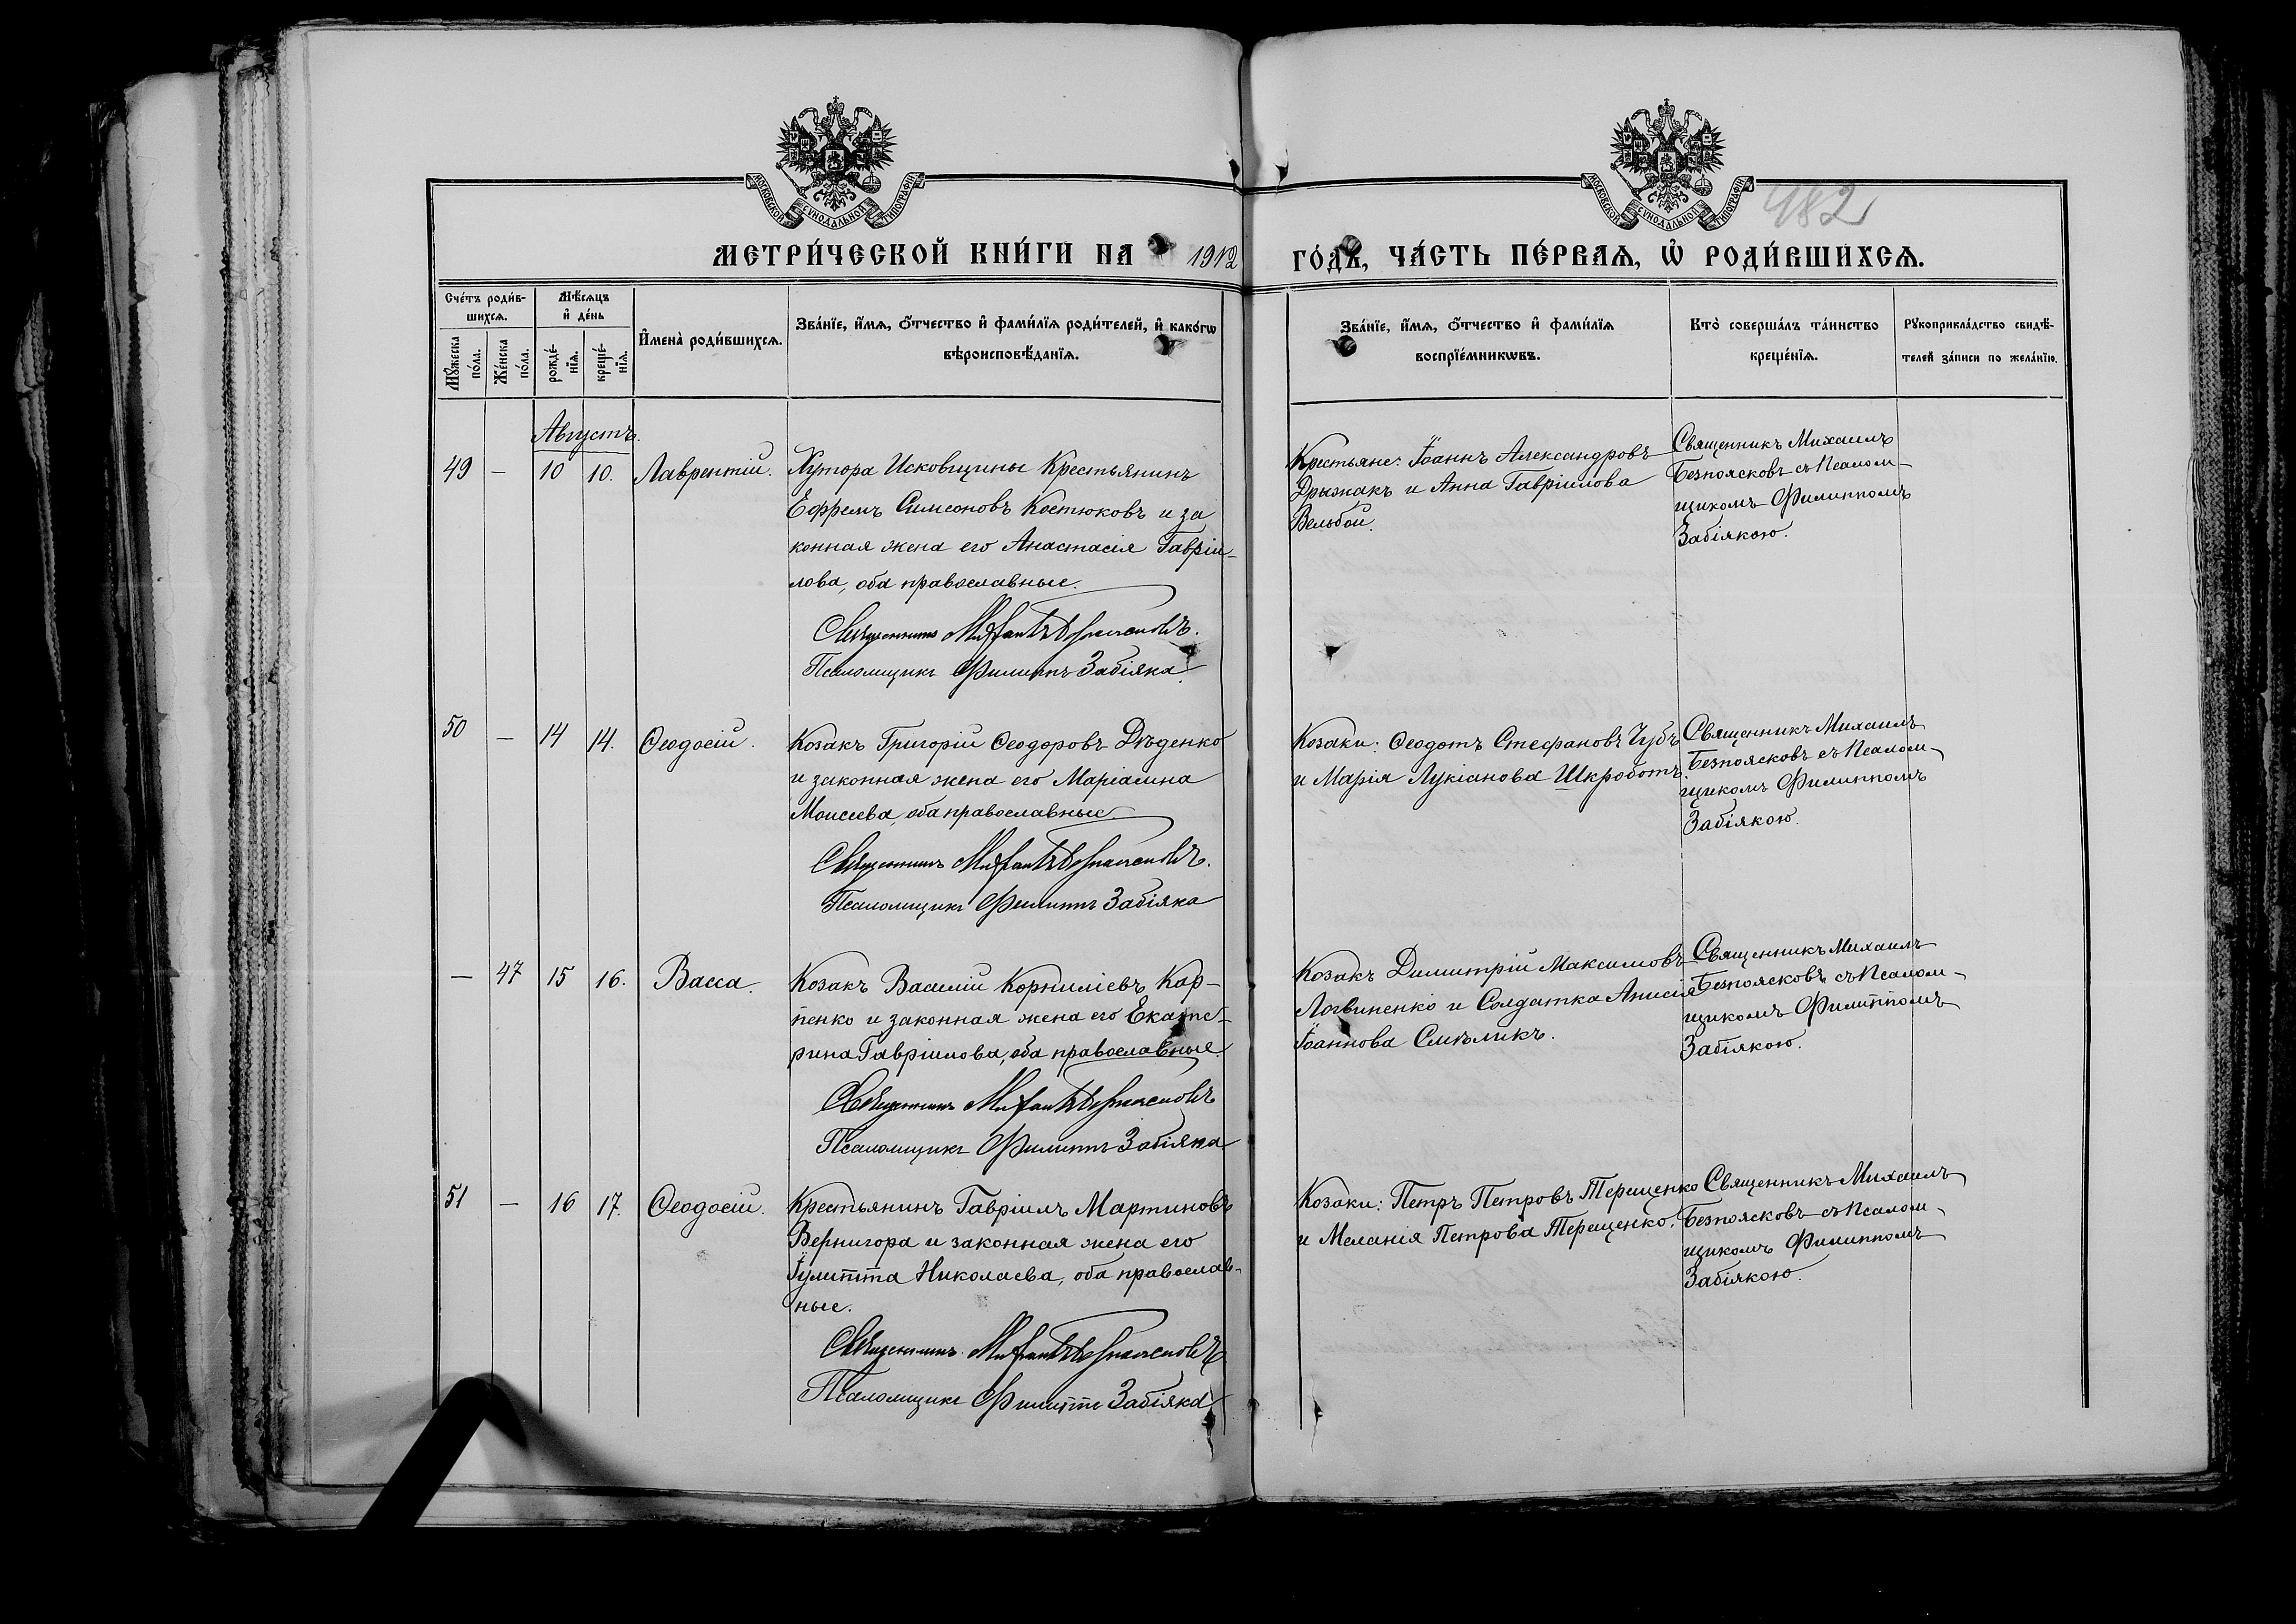 МОСКОВСКОЙ СУНОДАЛЬНОЙ ТИПОГРАФІИ
МОСКОВСКОЙ СУНОДАЛЬНОЙ ТИПОГРАФІИ
482
МЕТРИ́ЧЕСКОЙ КНИ́ГИ НА 1912 ГО́ДЪ, ЧА́СТЬ ПЕ́РВАѦ, Ѡ҆ РОДИ́ВШИХСѦ.
Сче́тъ роди́в-
шихсѧ.
Мѣ́сѧцъ
и҆ де́нь
Мꙋ́жеска
по́ла.
Же́нска
по́ла.
рожде́-
нїѧ.
креще́-
нїѧ.
И҆мена̀ роди́вшихсѧ.
Зва́нїе, и҆́мѧ, ѻ҆́тчество и҆ фами́лїѧ роди́телей, и҆ како́гѡ
вѣроисповѣ́данїѧ.
Зва́нїе, и҆́мѧ, ѻ҆́тчество и҆ фами́лїѧ
воспрїе́мникѡвъ.
Кто̀ соверша́лъ та́инство
креще́нїѧ.
Рꙋкоприкла́дство свидѣ́-
телей за́писи по жела́нїю.
Августъ.
49 — 10 10. Лаврентій.
Хутора Исковщины Крестьянинъ
Ефремъ Симеоновъ Костюковъ и за
конная жена его Анастасія Гаврiи-
лова, оба православные.
Священникъ Михаилъ Безпоясковъ.
Псаломщикъ Филиппъ Забіяка.
Крестьяне: Іоаннъ Александровъ
Дрыжакъ и Анна Гавріилова
Вельбой.
Священникъ Михаилъ
Безпоясковъ съ Псалом-
щикомъ Филиппомъ
Забіякою.
50 — 14 14. Ѳеодосій.
Козакъ Григорій Ѳеодоровъ Дѣденко
и законная жена его Маріамна
Моисеева, оба православные
Священникъ Михаилъ Безпоясковъ.
Псаломщикъ Филиппъ Забіяка
Козаки: Ѳеодотъ Стефановъ Чубъ
и Марія Лукіанова Шкроботъ.
Священникъ Михаилъ
Безпоясковъ съ Псалом-
щикомъ Филиппомъ
Забіякою.
— 47 15 16. Васса.
Козакъ Василій Корниліевъ Кар-
пенко и законная жена его Екате-
рина Гавріилова, оба православные.
Священникъ Михаилъ Безпоясковъ
Псаломщикъ Филиппъ Забіяка
Козакъ Димитрій Максимовъ
Логвиненко и Солдатка Анисія
Іоаннова Смѣликъ.
Священникъ Михаилъ
Безпоясковъ съ Псалом-
щикомъ Филиппомъ
Забіякою.
51 — 16 17. Ѳеодосій.
Крестьянинъ Гавріилъ Мартиновъ
Вернигора и законная жена его
Іулитта Николаева, оба православ-
ные.
Священникъ Михаилъ Безпоясковъ
Псаломщикъ Филиппъ Забіяка
Козаки: Петръ Петровъ Терещенко
и Меланія Петрова Терещенко.
Священникъ Михаилъ
Безпоясковъ съ Псалом-
щикомъ Филиппомъ
Забіякою.